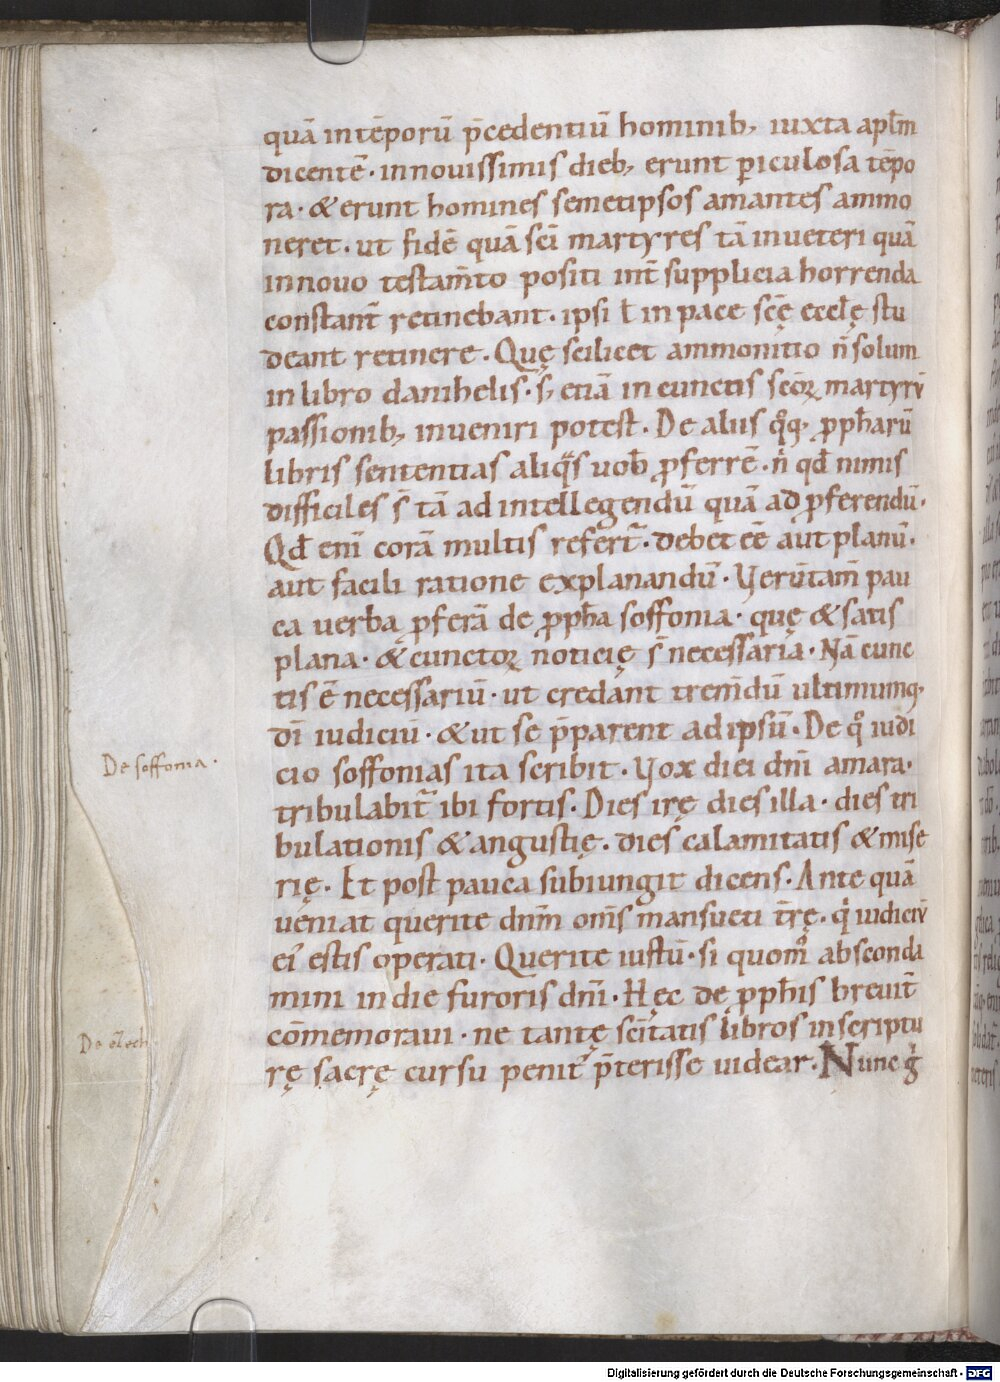 quā intēporū p̄cedentiū hominib; iuxta apl̄m
dicentē· in nouissimis dieb; erunt ꝑiculosa tēpo
ra· & erunt homines semetipsos amantes ammo
neret· ut fidē quā sc̄i martyres tā in ueteri quā
in nouo testam̄to positi int̄ supplicia horrenda
constant̄ retinebant· ipsi ł in pace sc̄ę eccl̄ę stu
deant retinere· Quę scilicet ammonitio n̄ solum
in libro danihelis· s; etiā in cunctis sc̄oꝝ martyrū
passionib; inueniri potest· De aliis qͦq; ꝓph̄arū
libris sententias aliqͣs uob̄ ꝓferrē· n̄ qđ nimis
difficiles s̄ tā ad intellegendū quā ad ꝓferendū·
Qđ eni̅ corā multis refert̄· debet eē aut planū·
aut facili ratione explanandū· Verūtam̄ pau
ca uerba ꝓferā de ꝓph̄a soffonia· quę & satis
plana· & cunctoꝝ noticię s̄ necessaria· Nā cunc
tis ē necessariū· ut credant tremdū ultimumq;
dī iudiciū· & ut se p̄parent ad ipsū· De qͦ iudi
cio soffonias ita scribit· Vox diei dn̄i amara·
tribulabit̄ ibi fortis· Dies irę dies illa· dies tri
bulationis & angustię· dies calamitatis & mise
rię· Et post pauca subiungit dicens· Ante quā
ueniat querite dnm̄ om̄s mansueti t̄rę· qͥ iudiciū
ei' estis operati· Querite iustū· si quomͦ absconda
mini in die furoris dn̄i· Hęc de ꝓph̄is breuit̄
cōmemoraui· ne tantę sc̄itatis libros in scriptu
rę sacrę cursu penit' p̄terisse uidear· Nunc gͥ
De soffonia·
De ezech